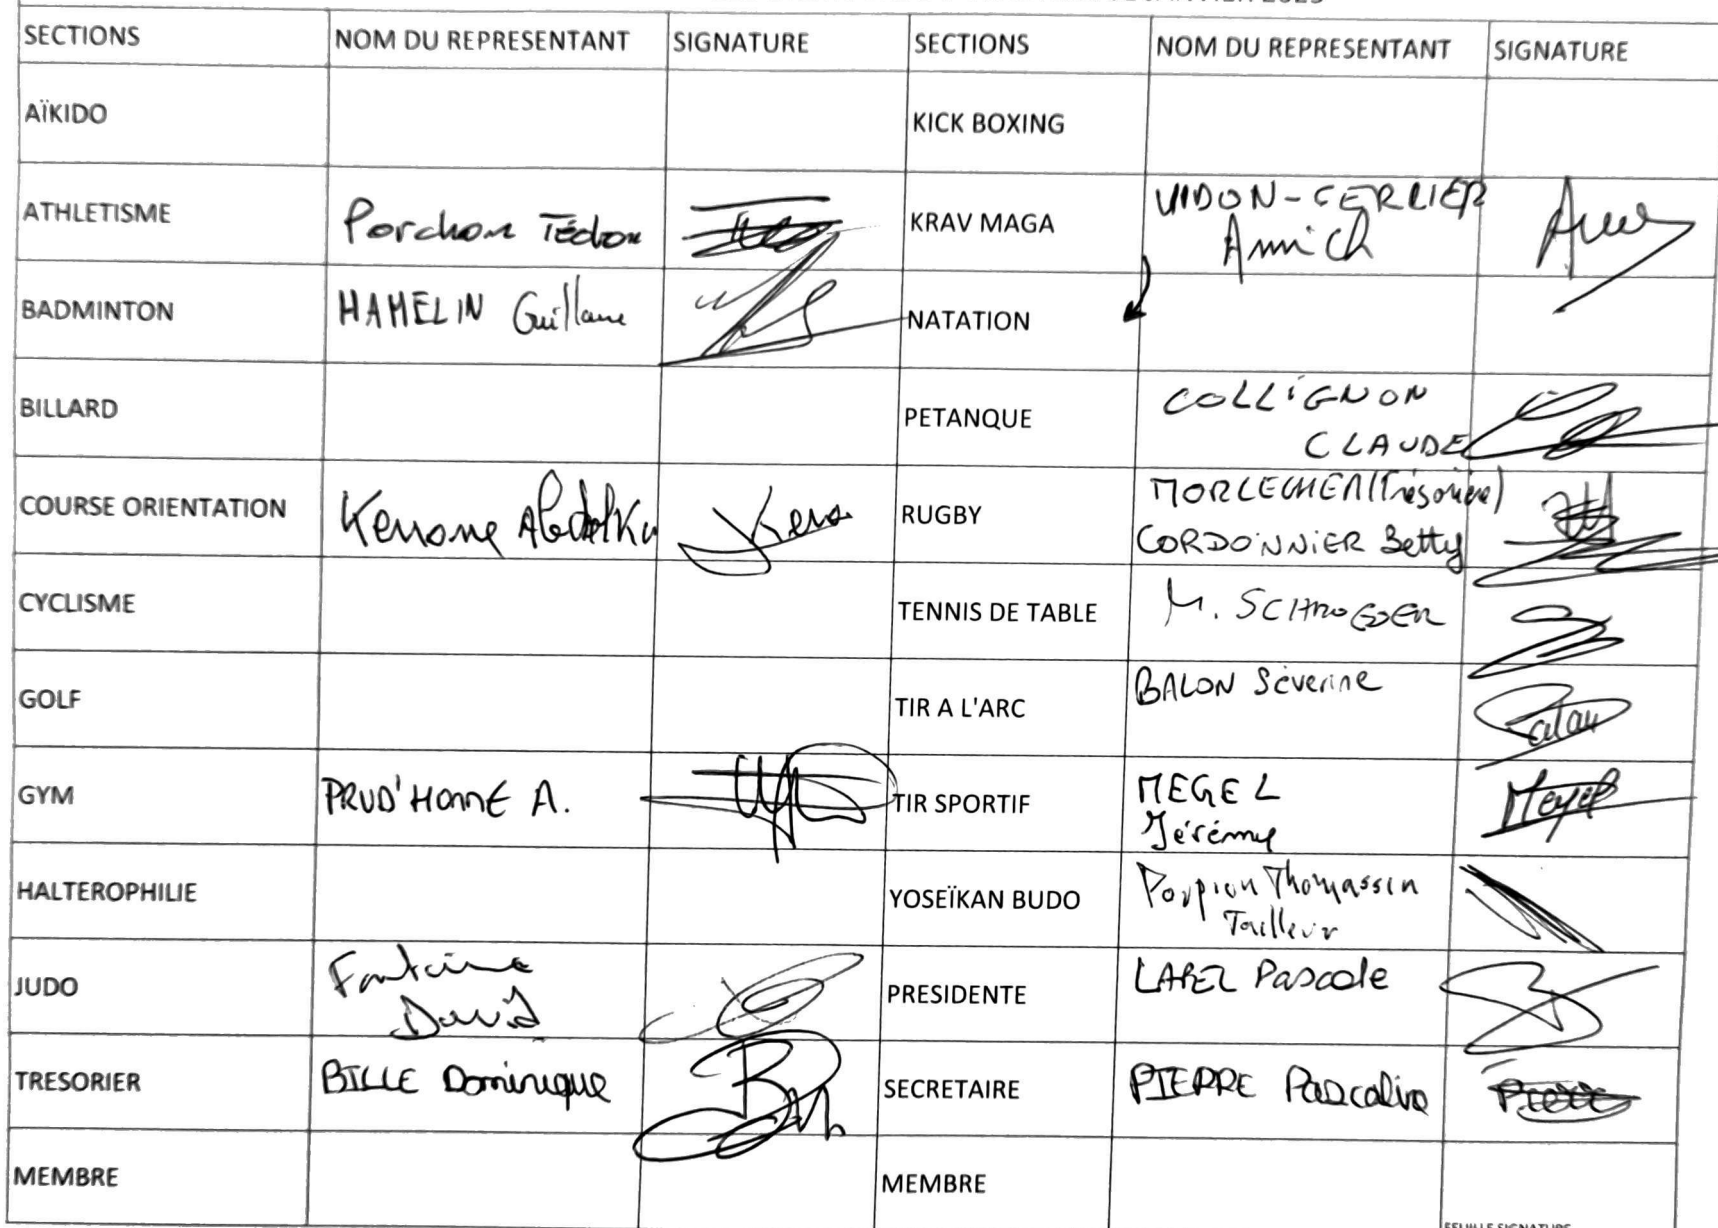 SECTIONS NOM DU REPRESENTANT SIGNATURE SECTIONS NOM DU REPRESENTANT SIGNATURE
AÏKIDO KICK BOXING
ATHLETISME Porchon KRAV MAGA VIDON-CERLIER
Annick
BADMINTON HAMELIN Guillaume NATATION
BILLARD PETANQUE COLLIGNON
CLAUDE
COURSE ORIENTATION RUGBY (Trésorière)
CORDONNIER Betty
CYCLISME TENNIS DE TABLE M. SCHROEDER
GOLF TIR A L'ARC BALON Séverine
GYM PRUD'HOMME A. TIR SPORTIF MEGEL Megel
Jérémy
HALTEROPHILIE YOSEÏKAN BUDO Thomassin
Tailleur
JUDO Fontaine PRESIDENTE LABEL Pascale
David
TRESORIER BILLE Dominique SECRETAIRE PIERRE Pascaline
MEMBRE MEMBRE
FEUILLE SIGNATURE